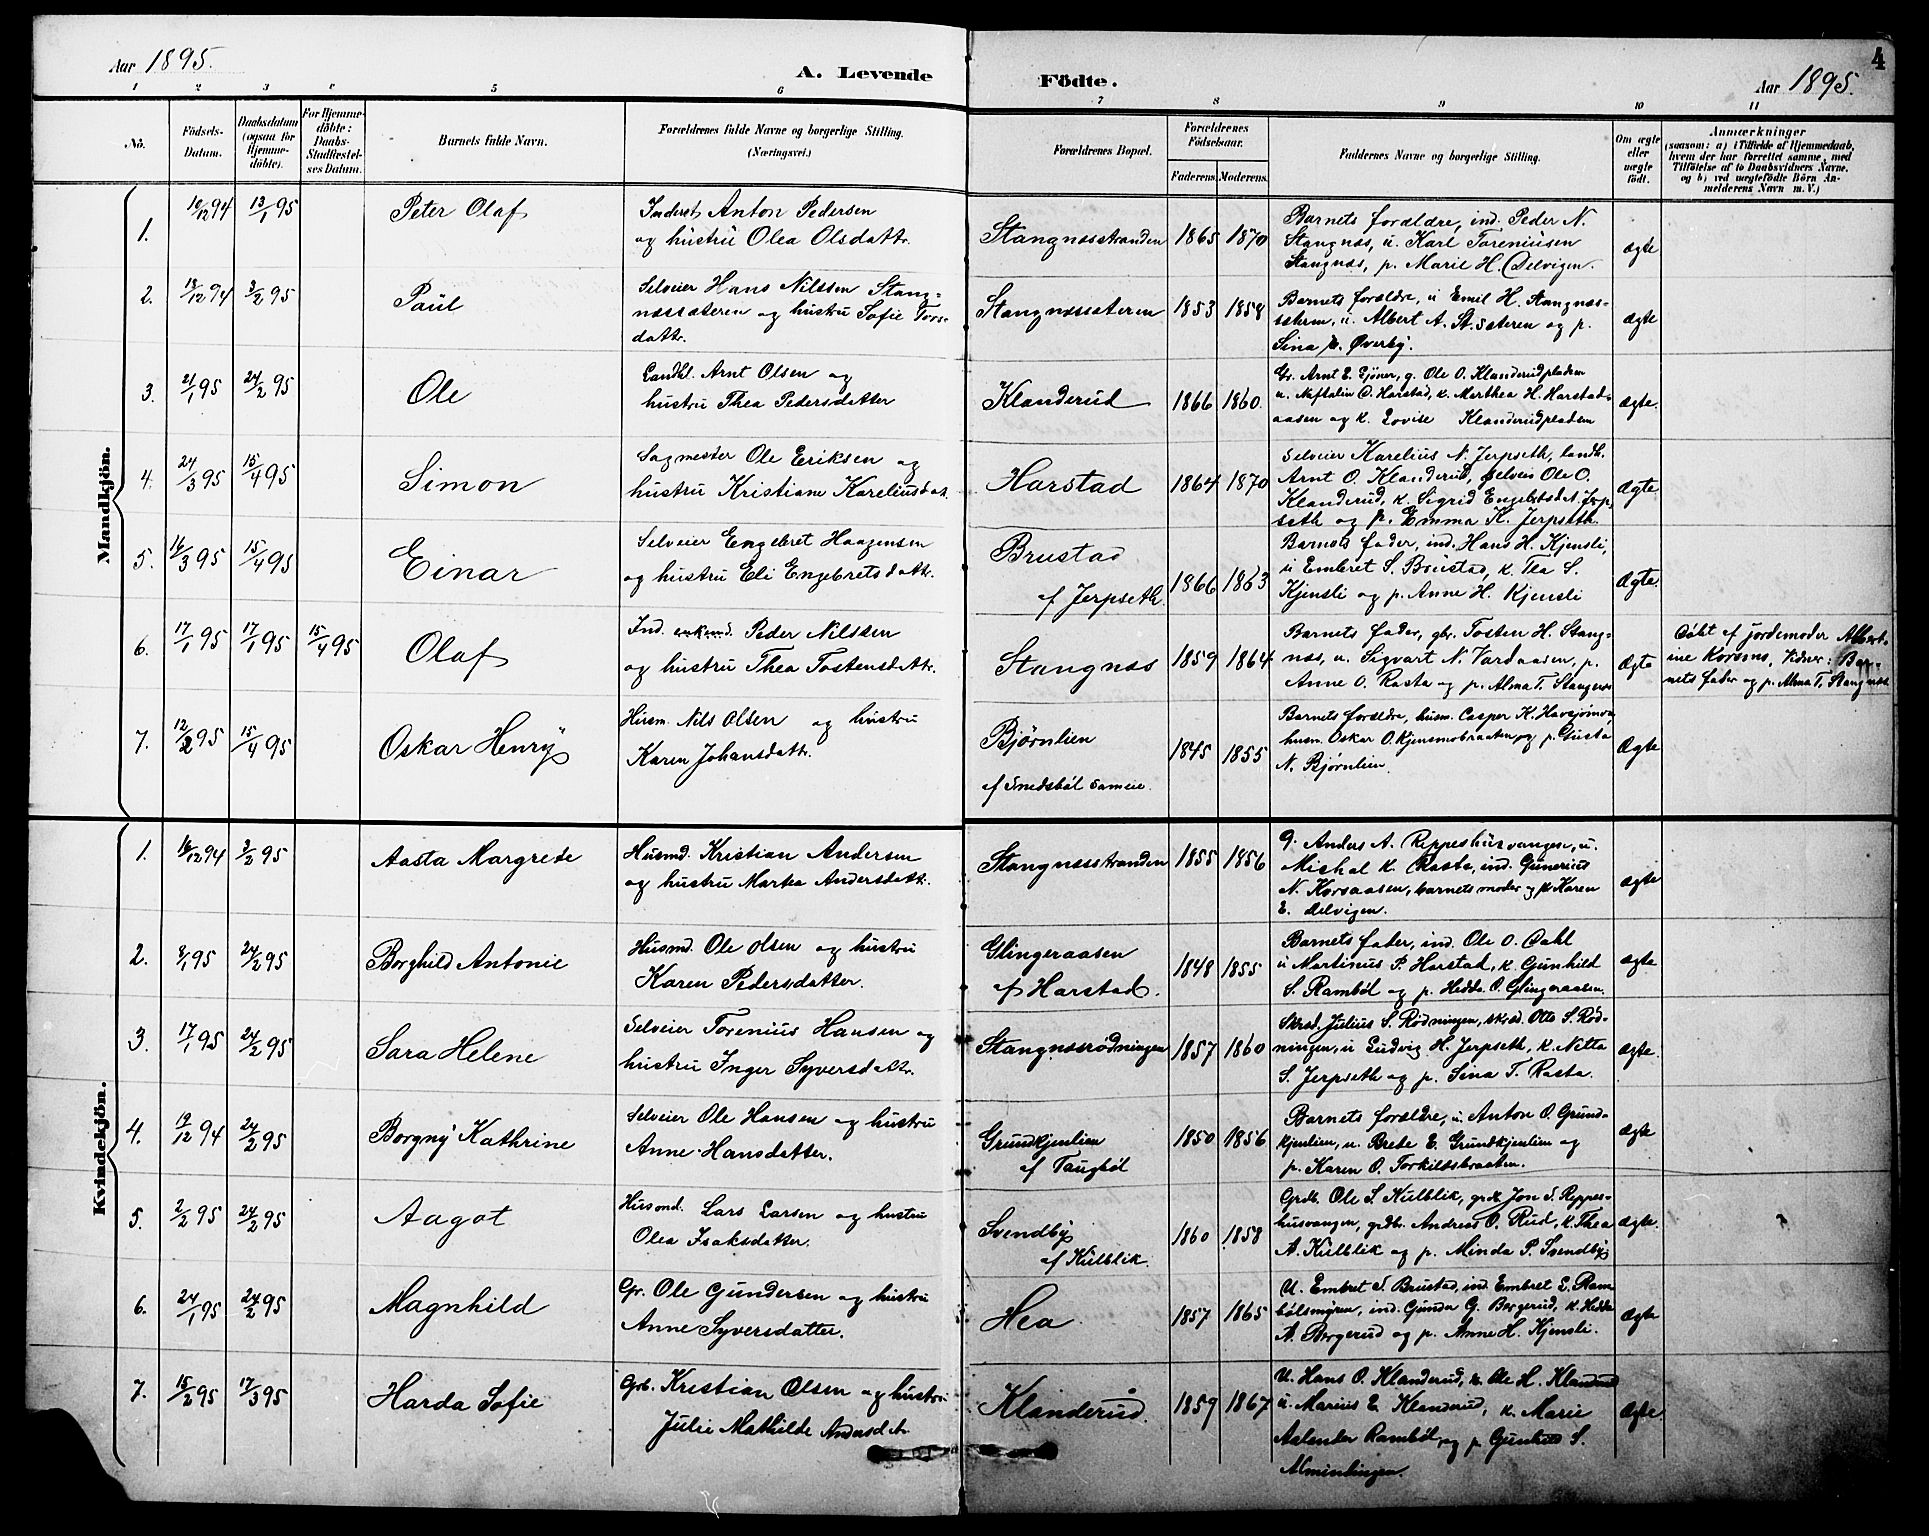 Aar 1895.
A. Levende
Födte.
Aar 1895.
4
1 2 3 4 5 6
7 8 9 10 11
No.
Födsels-
Datum.
Daabsdatum
(ogsaa for
Hjemme-
döbte).
For Hjemme-
döbte:
Daabs-
Stadfæstel-
ses Datum.
Barnets fulde Navn.
Forældrenes fulde Navne og borgerlige Stilling.
(Næringsvei.)
Forældrenes Bopæl.
Forældrenes
Födselsaar.
Faderens.
Moderens.
Faddernes Navne og borgerlige Stilling.
Om ægte
eller
uægte
født.
Anmærkninger
(saasom: a) i Tilfælde af Hjemmedaab,
hvem der har forrettet samme, med
Tilföielse af to Daabsvidners Navne.
og b) ved uægtefödte Börn An-
melderens Navn m. V.)
Mandkjön.
1. 10/12 94 13/1 95 Peter Olaf
Inderst Anton Pedersen
og hustru Olea Olsdattr.
Stangnæsstranden 1865 1870
Barnets forældre, ind. Peder N.
Stangnæs, u. Karl Toreniusen
Stangnæs, p. Marie H. Delvigen.
ægte
2. 13/12 94 3/2 95 Paul
Selveier Hans Nilssen Stang-
næssæteren og hustru Sofie Tors-
dattr.
Stangnæssæteren 1853 1858
Barnets forældre, u Emil H. Stangnæs-
sæteren, u. Albert A. St.sæteren og p.
Sina Øverby.
ægte
3. 21/1 95 24/2 95 Ole
Landhl. Arnt Olsen og
hustru Thea Pedersdatter
Klanderud 1866 1860.
Gr. Arnt E. Sjöner, g. Ole O. Klanderudpladsen
u. Naftalin O. Harstad, k. Marthea H. Harstad-
aasen og k. Lovise Klanderudpladsen
ægte.
4. 24/3 95 15/4 95 Simon
Sagmester Ole Eriksen og
hustru Kristiane Kareliusdat.
Harstad 1864 1870
Selveier Karelius N. Jerpseth, landh.
Arnt O. Klanderud, selveier Ole O.
Klanderud, k. Sigrid Engebretsdt. Jerp-
seth og p. Emma K. Jerpseth.
Ægte
5. 16/3 95 15/4 95 Einar
Selveier Engebret Haagensen
og hustru Eli Engebretsdattr.
Brustad
af Jerpseth. 1866 1863
Barnets fader, ind. Hans H. Kjensli,
u Embret S. Brustad, k. Ida S.
Kjensli og p. Anne H. Kjensli
Ægte.
6. 17/1 95 17/1 95 15/4 95 Olaf
Ind. Peder Nilssen
og hustru Thea Tostensdattr.
Stangnæs 1859 1864
Barnets fader, gbr. Tosten H. Stang-
næs, u. Sigvart N. Vardaasen, p.
Anne O. Rasta og p. Alma T. Stangnæs
Ægte
Döbt af jordemoder Albert-
ine Korsons, Vidner: Bar-
nets fader og p. Alma T. Stangnæs
7. 12/2 95 15/4 95 Oskar Henry
Husm. Nils Olsen og hustru
Karen Johansdattr.
Bjørnlien
af Snedsböl Sameie. 1845 1855
Barnets forældre, husm. Casper K. Havsjömo
husm. Oskar O. Kjensmobraaten og p. Gusta
N. Bjørnlien.
Ægte
Kvindekjön.
1. 16/12 94 3/2 95 Aasta Margrete
Husmd. Kristian Andersen
og hustru Martea Andersdattr.
Stangnæsstranden 1855 1856
G. Anders A. Reppeshusvangen, u.
Michal K. Rasta, ind. Gunerius
N. Korsaasen, barnets moder og k. Karen
E. Delvigen.
ægte
2. 8/1 95 24/2 95 Borghild Antonie
Husmd. Ole Olsen og hustru
Karen Pedersdatter.
Glingeraasen
af Harstad. 1848 1855
Barnets fader, ind. Ole O. Dahl
u Martinus P. Harstad, k. Gunhild
S. Ramböl og p. Hedda O. Glingeraasen.
ægte
3. 17/1 95 24/2 95 Sara Helene
Selveier Torenius Hansen og
hustru Inger Syversdattr.
Stangnæsrødningen 1857 1860
Skræd. Julius S. Rødningen, skræd. Otto S. Rød-
ningen, u Ludvig H. Jerpseth, k. Netta
S. Jerpseth og p. Sina T. Rasta.
ægte.
4. 19/12 94 24/2 95 Borgny Kathrine
Selveier Ole Hansen og hustru
Anne Hansdatter.
Grundkjenlien
af Taugböl 1850 1856
Barnets forældre, u. Anton O. Grund-
kjenlien, u. Brede E. Grundkjenlien og
p. Karen O. Torkilsbraaten.
Ægte
5. 2/2 95 24/2 95 Aagot
Husmd. Lars Larsen og hustru
Olea Isaksdatter.
Svendby
af Kulblik. 1860 1858
Grdb. Ole S. Kulblik, grdb. Jon S. Reppes-
husvangen, grdb. Andreas O. Rud, k. Thea
A. Kulblik og p. Minda P. Svendby
Ægte.
6. 24/1 95 24/2 95 Magnhild
Gr. Ole Gundersen og hustru
Anne Syversdatter.
Hea 1857 1865
U. Embret S. Brustad, ind. Embret L. Ram-
bölsmyren, ind. Gunder G. Borgerud, k. Hedda
A. Borgerud og p. Anne H. Kjensli.
Ægte
7. 15/2 95 17/3 95 Harda Sofie
Grb. Kristian Olsen og hustru
Julie Mathilde Andersdtr.
Klanderud. 1859 1867
U. Hans O. Klanderud, u. Ole H. Klanderud
u. Marius E. Klanderud, k. Marie
Aslender Ramböl, og p. Gunhild S.
Almindingen.
Ægte